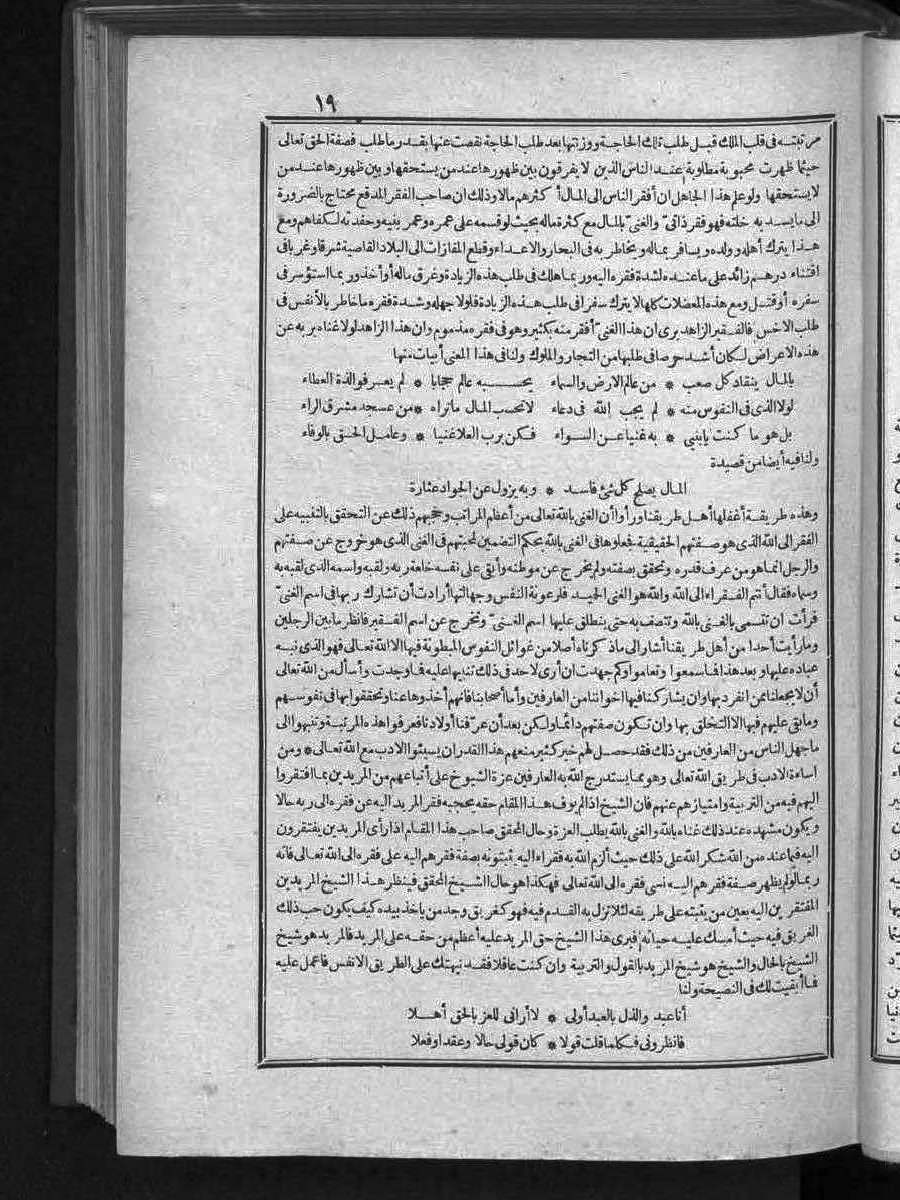 ١٩
مرتبته فى قلب الملك قبل طلب تلك الحاجة ووزنتها بعد طلب الحاجة نقصت عنها بقدر ما طلب فصفة الحق تعالى
حيثما ظهرت محبوبة مطلوبة عند الناس الذين لا يفرقون بين ظهورها عند من يستحقها وبين ظهورها عند من
لا يستحقها ولو علم هذا الجاهل ان أفقر الناس الى المال أكثرهم مالا وذلك ان صاحب الفقر المدقع محتاج بالضرورة
الى ما يسد به خلته فهو فقر ذاتى والغنى بالمال مع كثرة ماله بحيث لو قسمه على عمره وعمر بنيه وحفدته لكفاهم ومع
هذا يترك أهله وولده ويسافر بماله ويخاطر به فى البحار والاعداء وقطع المفازات الى البلاد القاصية شرقا وغربا فى
اقتناء درهم زائد على ما عنده لشدة فقره اليه وربما هلك فى طلب هذه الزيادة وغرق ماله أو أخذ وربما استؤسر فى
سفره أو قتل ومع هذه المعضلات كلها لا يترك سفرا فى طلب هذه الزيادة فلولا جهله وشدة فقره ما خاطر بالأنفس فى
طلب الاخس فالفقير الزاهد يرى ان هذا الغنى أفقر منه بكثير وهو فى فقره مذموم وان هذا الزاهد لولا غناه بربه عن
هذه الاعراض لكان أشد حرصا فى طلبها من التجار والملوك ولنا فى هذا المعنى أبيات منها
بالمال ينقاد كل صعب * من عالم الارض والسماء يحسبه عالم حجابا * لم يعرفوا لذة العطاء
لولا الذى فى النفوس منه * لم يجب الله فى دعاء لا تحسب المال ما تراه * من عسجد مشرق الراء
بل هو ما كنت يا بنى * به غنيا عن السواء فكن برب العلا غنيا * وعامل الحق بالوفاء
ولنا فيه أيضا من قصيدة
المال يصلح كل شئ فاسد * وبه يزول عن الجواد عثاره
وهذه طريقة أغفلها أهل طريقنا ورأوا أن الغنى بالله تعالى من أعظم المراتب وحجبهم ذلك عن التحقق بالتنبيه على
الفقر الى الله الذى هو صفتهم الحقيقية فجعلوها فى الغنى بالله بحكم التضمين لمحبتهم فى الغنى الذى هو خروج عن صفتهم
والرجل انما هو من عرف قدره وتحقق بصفته ولم يخرج عن موطنه وأبقى على نفسه خلعة ربه ولقبه واسمه الذى لقبه به
وسماه فقال أنتم الفقراء الى الله والله هو الغنى الحميد فلرعونة النفس وجهالتها أرادت أن تشارك ربها فى اسم الغنى
فرأت ان تتسمى بالغنى بالله وتتصف به حتى ينطلق عليها اسم الغنى وتخرج عن اسم الفقير فانظر ما بين الرجلين
وما رأيت أحدا من أهل طريقنا أشار الى ما ذكرناه أصلا من غوائل النفوس المبطونة فيها الا الله تعالى فهو الذى نبه
عباده عليها وبعد هذا فما سمعوا وتعاموا وكم جهدت ان أرى لاحد فى ذلك تنبيها عليه فما وجدت وأسأل من الله تعالى
أن لا يجعلنا ممن انفرد بها وان يشاركنا فيها اخواننا من العارفين وأما أصحابنا فانهم أخذوها عنا وتحققوا بها فى نفوسهم
وما بقى عليهم فيها الا التخلق بها وان تكون صفتهم دائما ولكن بعد أن عرّفنا أولادنا فعرفوا هذه المرتبة وتنبهوا الى
ما جهل الناس من العارفين من ذلك فقد حصل لهم خير كثير منعهم هذا القدر ان يسيئوا الادب مع الله تعالى * ومن
اساءة الادب فى طريق الله تعالى وهو مما يستدرج الله به العارفين عزة الشيوخ على أتباعهم من المريدين بما افتقروا
اليهم فيه من التربية وامتيازهم عنهم فان الشيخ اذا لم يوف هذا المقام حقه يحجبه فقر المريد اليه عن فقره الى ربه حالا
ويكون مشهده عند ذلك غناه بالله والغنى بالله يطلب العزة وحال المحقق صاحب هذا المقام اذا رأى المريدين يفتقرون
اليه فيما عنده من الله شكر الله على ذلك حيث ألزم الله به فقراء اليه يثبتونه بصفة فقرهم اليه على فقره الى الله تعالى فانه
ربما لو لم يظهر صفة فقرهم اليه نسى فقره الى الله تعالى فهكذا هو حال الشيخ المحقق فينظر هذا الشيخ المريدين
المفتقرين اليه بعين من يثبته على طريقه لئلا تزل به القدم فيه فهو كغريق وجد من ياخذ بيده كيف يكون حب ذلك
الغريق فيه حيث أمسك عليه حياته فيرى هذا الشيخ حق المريد عليه أعظم من حقه على المريد فالمريد هو شيخ
الشيخ بالحال والشيخ هو شيخ المريد بالقول والتربية وان كنت عاقلا فقد نبهتك على الطريق الانفس فاعمل عليه
فما أبقيت لك فى النصيحة ولنا
أنا عبد والذل بالعبد أولى * لا أرانى للعز بالحق أهلا
فانظرونى فكلما قلت قولا * كان قولى حالا وعقدا وفعلا